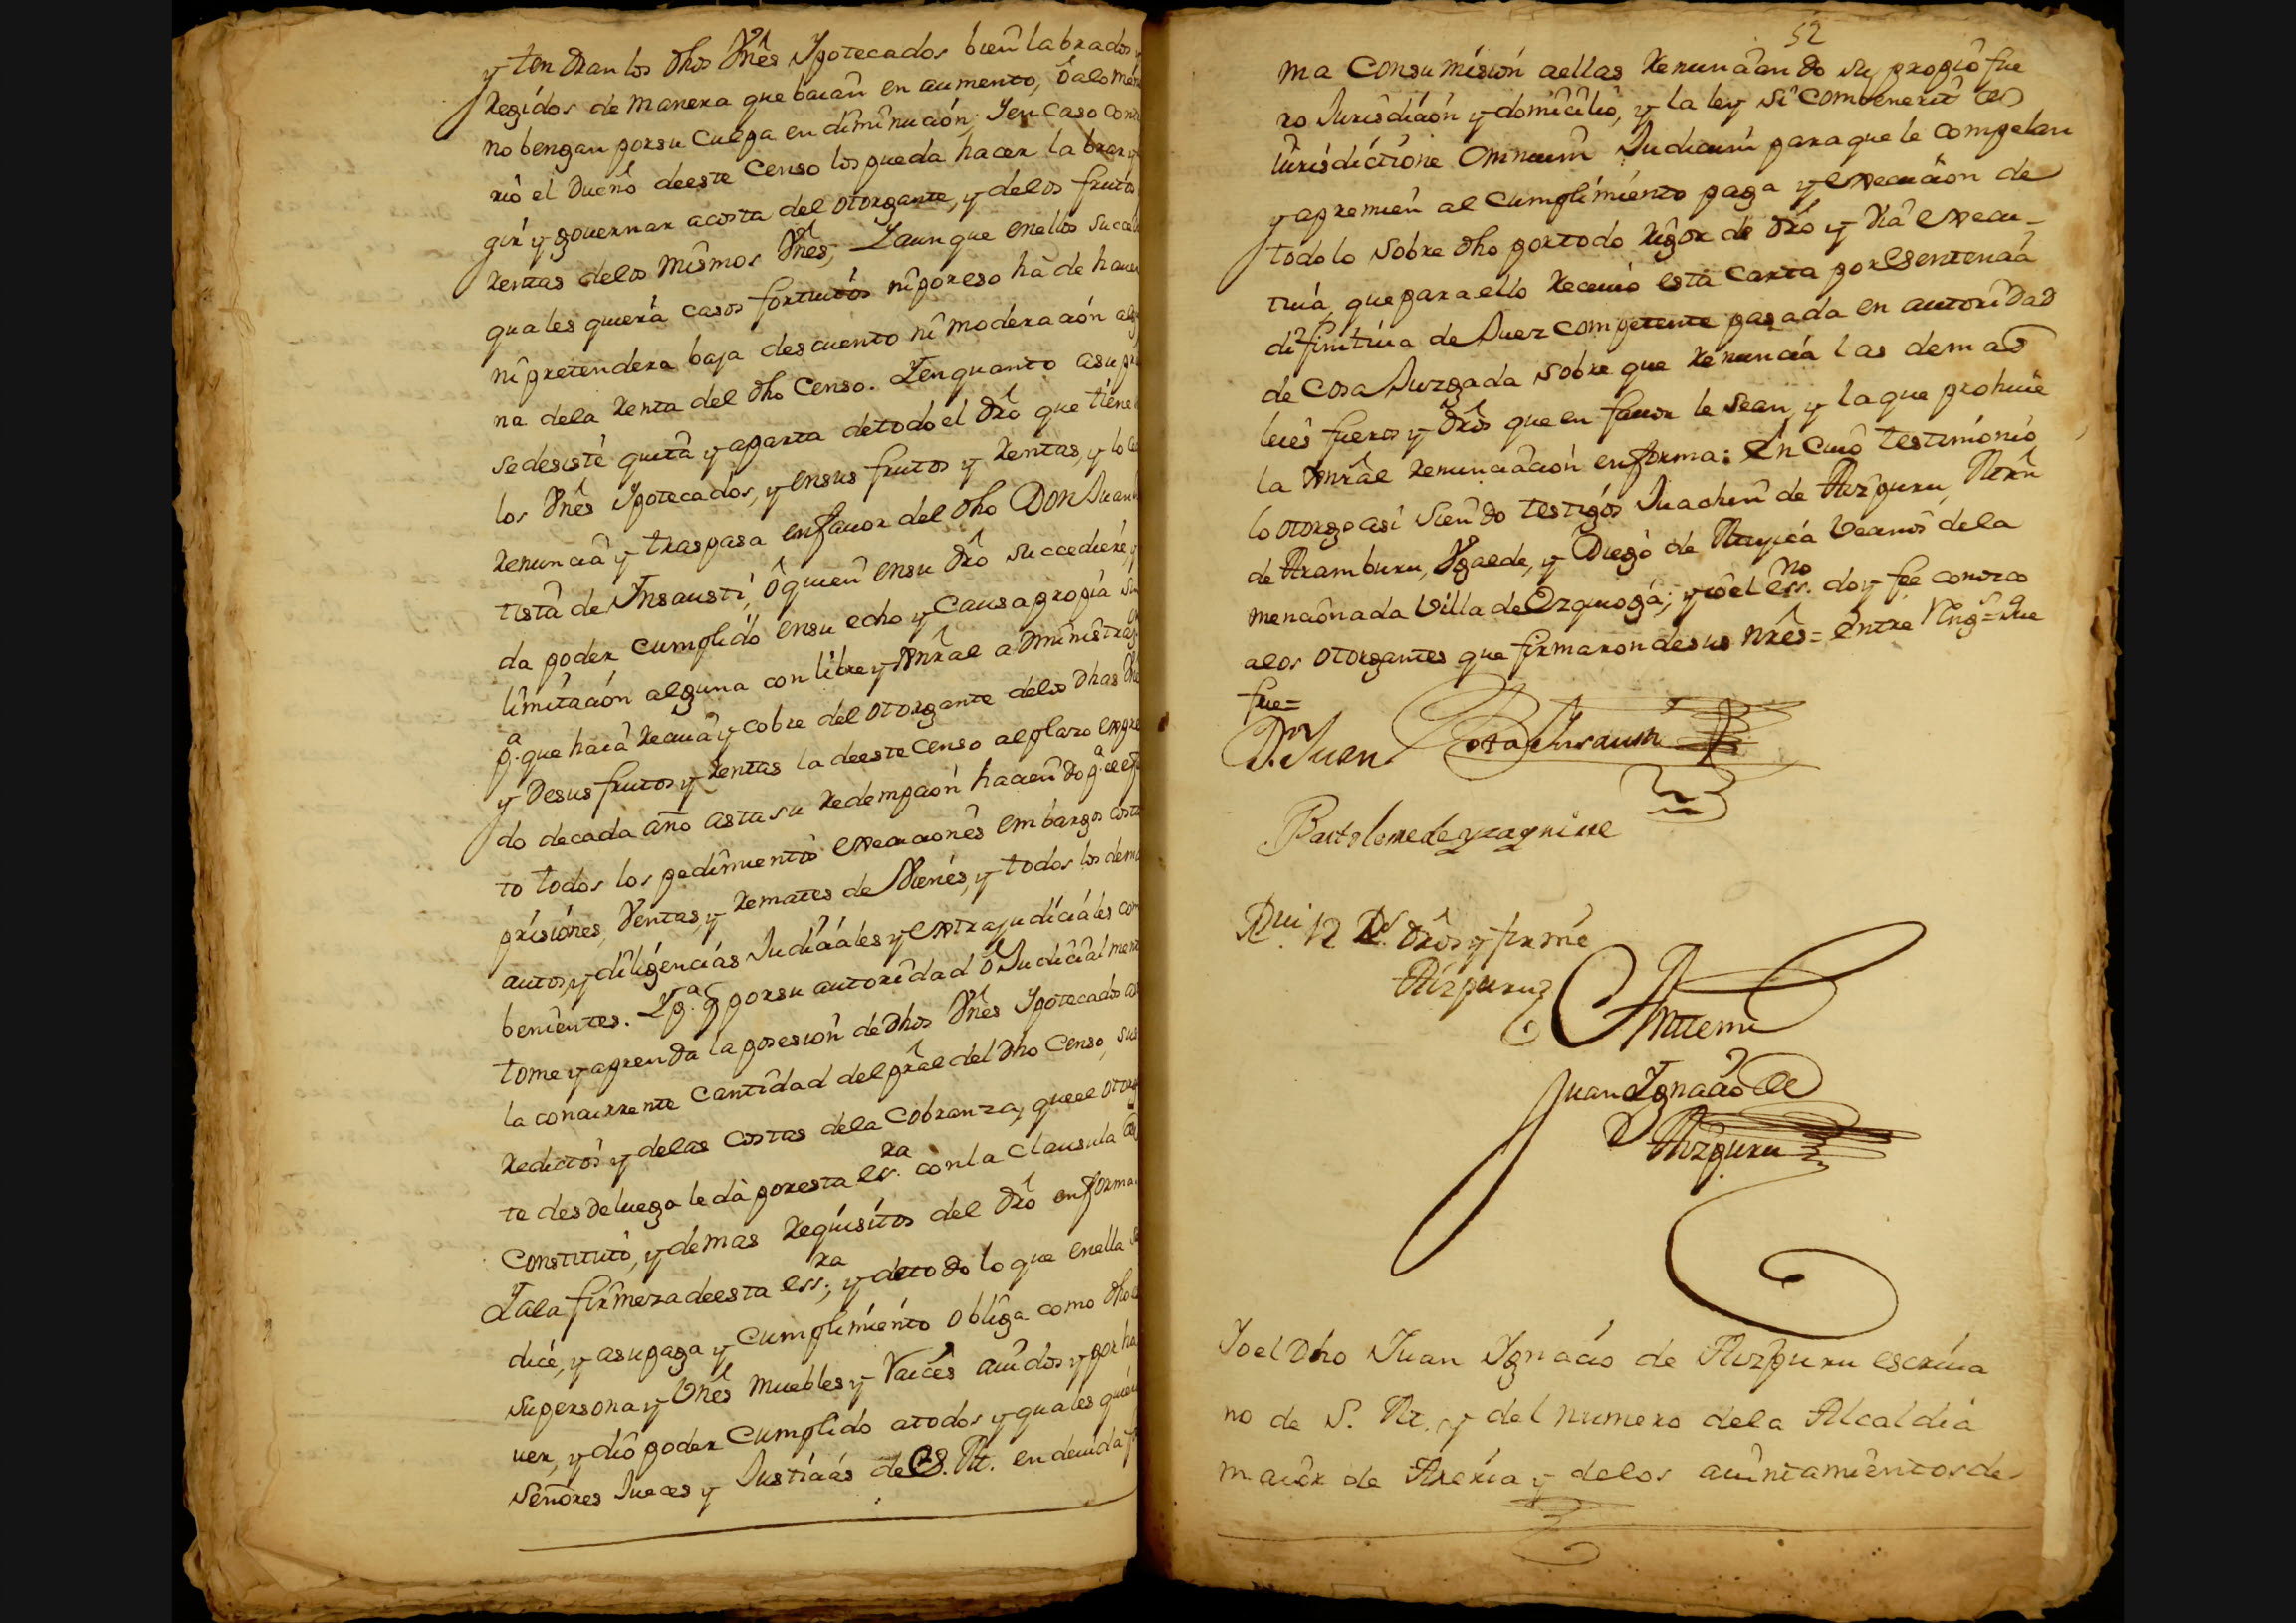 y ten dran los dhos Vnês Ypotecados bien labrados y
regidos de manera que baian en aumento, ô alo men
no bengan por su culpa en diminución; Y en caso cont
rio el dueño de este Censo los pueda hacer labrar y
gir y gouernar acosta del otorgante, y delos frutos
rentas delos mismos Vnês; Y aunque enellos succed
quales quiera casos fortuitos ni por eso hà de hauer
ni pretendera baja descuento ni moderación alg
na dela renta del dho Censo. Y en quanto asu pr
se desiste quita y aparta de todo el drô que tiene
los Vnês Ypotecados, y ensus frutos y rentas, y lo ce
renuncia y traspasa enfauor del dho Don Juan
tista de Insausti, ô quien ensu drô succediere, y
da poder cumplido ensu echo y causa propia sin
limitación alguna con libre y Gnrâl administra
pa. que haia reciua y cobre del otorgante delos dhas
y de sus frutos y rentas la de este Censo al plazo expre
do de cada año asta su redempción haciendo pa. el ef
to todos los pedimientos execuciones embargos costa
prisiones, Ventas, y remates de Vienes, y todos los dema
autos, y diligencias Judiciales y extrajudiciales con
benientes. Y pa. q por su autoridad ô Judicialment
tome y aprenda la posesión de dhos Vnês Ypotecados
la concurrente cantidad del prâl del dho Censo, sus
reditos y delas costas dela cobranza, que el otorg
te desde luego le dà por esta esra. con la clausula de
constituto, y demas requisitos del drô en forma.
Y ala firmeza de esta essra., y de todo lo que enella se
dice, y asu paga y cumplimiento obliga como dho
su persona y Vnês muebles y raices auidos y por ha
uer, y diô poder cumplido atodos y quales quier
Señores Jueces y Justicias de S. M. en deuida f
52
ma consumisión aellas renunciando su propio fue
ro Jurisdición y domicilio, y la ley si combenerit de
Iurisdictione omnium Judicum para que le compelan
y apremien al cumplimiento paga y execución de
todo lo sobre dho por todo rigor de drô y via execu-
tiua, que para ello reciuio esta carta por sentencia
difinitiua de Juez competente pasada en autoridad
de cosa Juzgada sobre que renuncia las demas
leies fueros y drôs que en fauor le sean, y la que prohiue
la Gnrâl renunciación en forma: En cuio testimonio
lo otorgo asi siendo testigos Juachin de Aizpuru, Mrn
de Aramburu, Vgalde, y Diego de vecinos dela
mencionada Villa de Ezquioga; y io el essno. doy fee conozco
alos otorgantes que firmaron de sus nrês = entre
fue=
Dn. Juan Bta Insausti
Bartolome de yzaguirre
Reui 12 Rs. drôs y firmé
Aizpuru
Antemi
Juan Ignacio de
Aizpuru
Yo el dho Juan Ignacio de Aizpuru escriua
no de S. M. y del numero dela Alcaldia
maior de Areria y delos aiuntamientos de